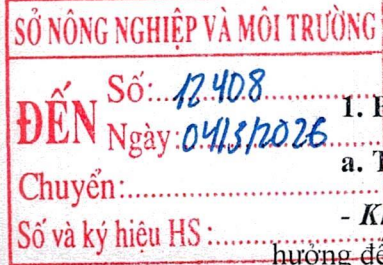 SỞ NÔNG NGHIỆP VÀ MÔI TRƯỜNG
ĐẾN
Số:...12408
Ngày:04/3/2026
Chuyển:
Số và ký hiệu HS:
1.
a.
-
hưởng